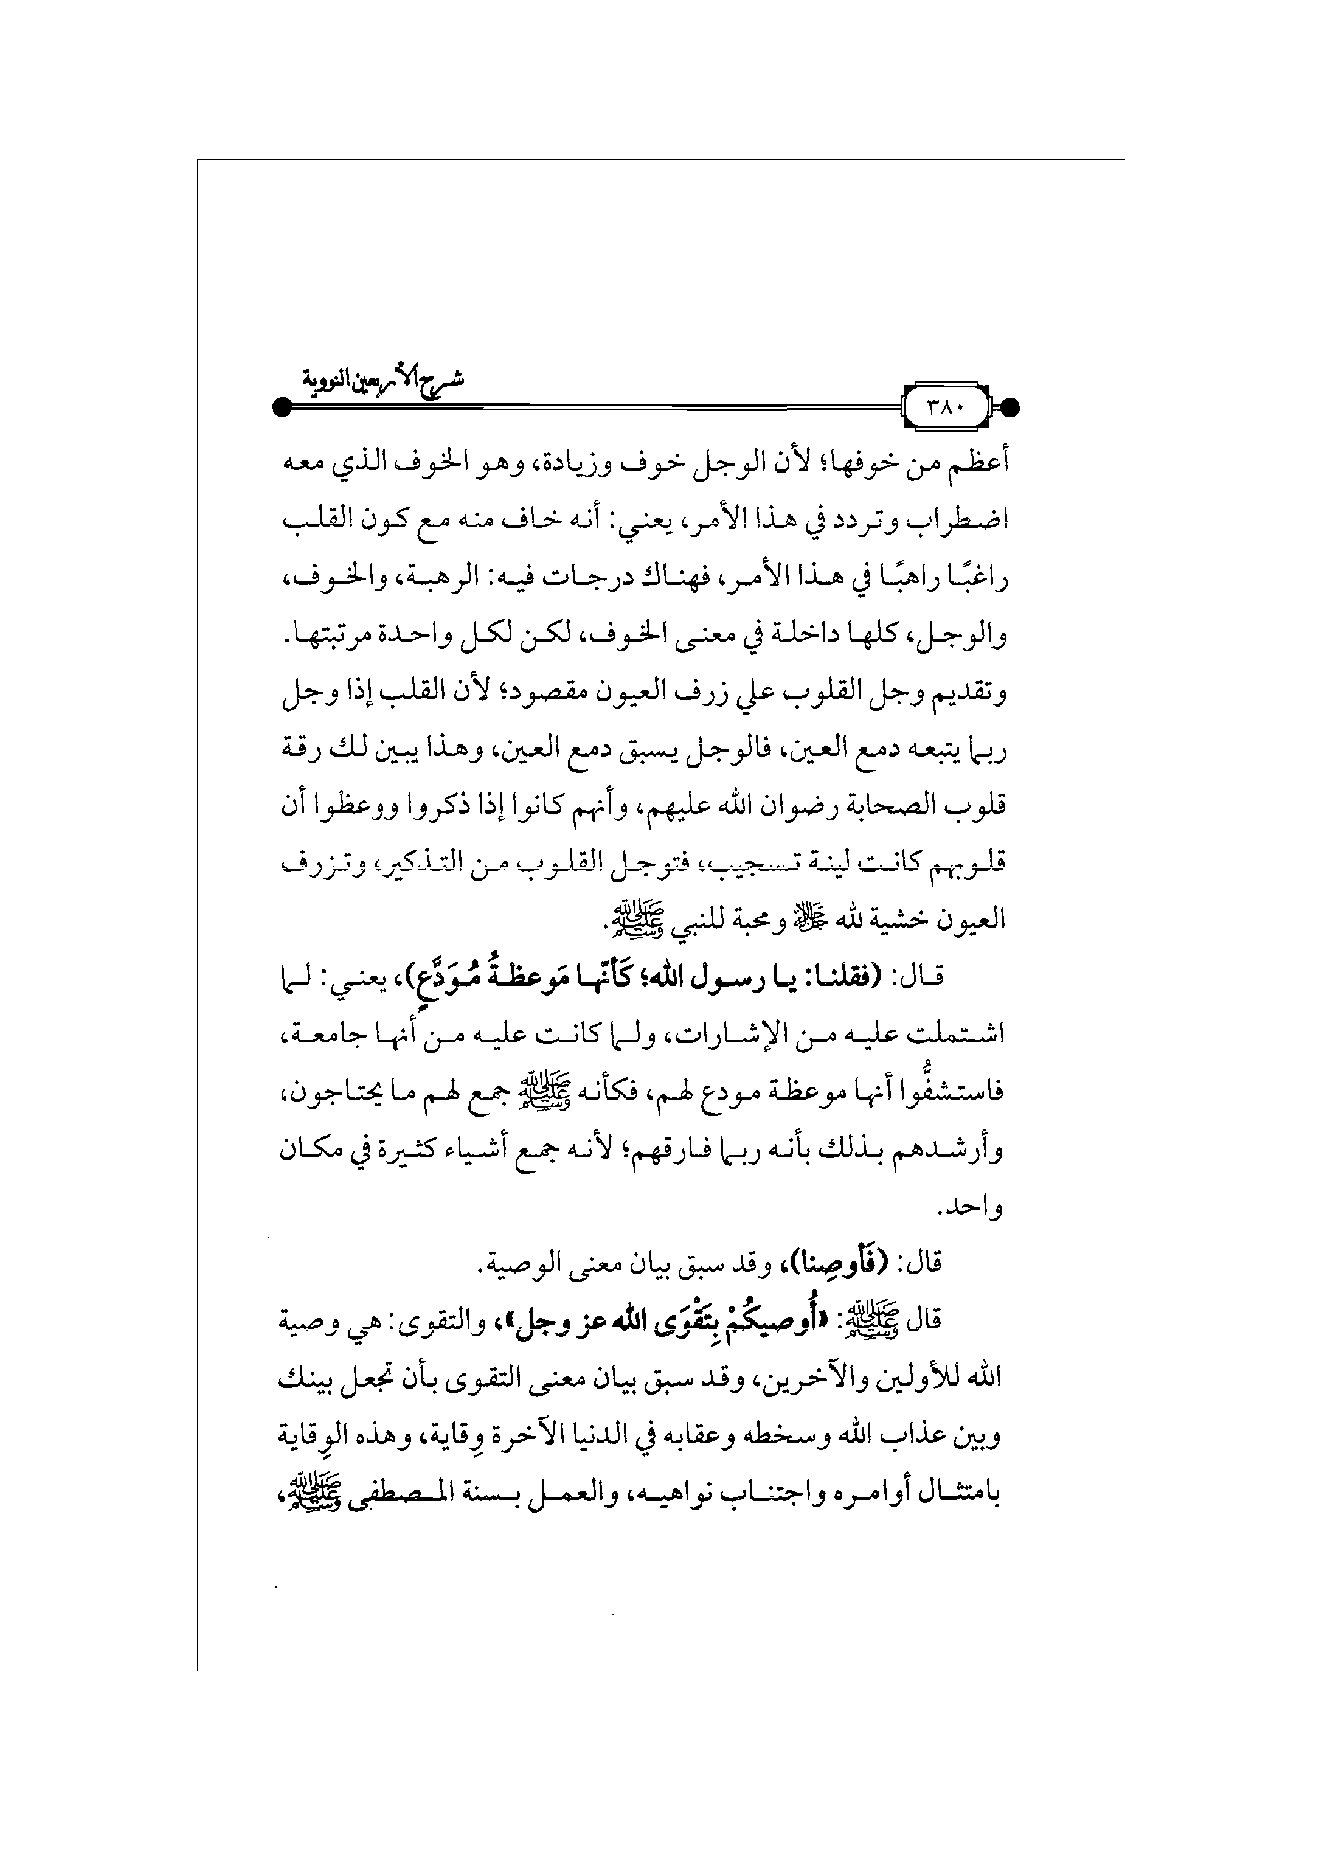 شرح الأربعين النووية
٣٨٠
أعظم من خوفها؛ لأن الوجل خوف وزيادة، وهو الخوف الذي معه
اضطراب وتردد في هذا الأمر، يعني: أنه خاف منه مع كون القلب
راغبًا راهبًا في هذا الأمر، فهناك درجات فيه: الرهبة، والخوف،
والوجل، كلها داخلة في معنى الخوف، لكن لكل واحدة مرتبتها.
وتقديم وجل القلوب علي زرف العيون مقصود؛ لأن القلب إذا وجل
ربما يتبعه دمع العين، فالوجل يسبق دمع العين، وهذا يبين لك رقة
قلوب الصحابة رضوان الله عليهم، وأنهم كانوا إذا ذكروا ووعظوا أن
قلوبهم كانت لينة تسجيب، فتوجل القلوب من التذكير، وتزرف
العيون خشية لله ﷻ ومحبة للنبي ﷺ.
قال: (فقلنا: يا رسول الله؛ كَأَنَّها مَوعظةُ مُوَدَّعٍ)، يعني: لما
اشتملت عليه من الإشارات، ولما كانت عليه من أنها جامعة،
فاستشفُّوا أنها موعظة مودع لهم، فكأنه ﷺ جمع لهم ما يحتاجون،
وأرشدهم بذلك بأنه ربما فارقهم؛ لأنه جمع أشياء كثيرة في مكان
واحد.
قال: (فَأَوصِنا)، وقد سبق بيان معنى الوصية.
قال ﷺ: «أُوصيكُمْ بِتَقْوَى الله عز وجل»، والتقوى: هي وصية
الله للأولين والآخرين، وقد سبق بيان معنى التقوى بأن تجعل بينك
وبين عذاب الله وسخطه وعقابه في الدنيا الآخرة وِقاية، وهذه الوِقاية
بامتثال أوامره واجتناب نواهيه، والعمل بسنة المصطفى ﷺ،